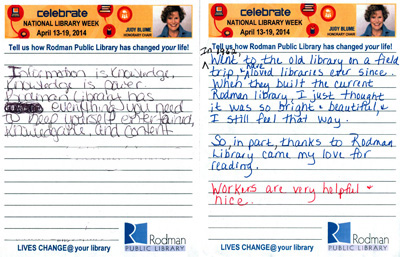 celebrate
NATIONAL LIBRARY WEEK
April 13-19, 2014
JUDY BLUME
HONORARY CHAIR
Tell us how Rodman Public Library has changed your life!
Information is knowledge.
Knowledge is power
Rodman Library has
everything you need
to keep yourself entertained,
knowledgable, and content
LIVES CHANGE@your library
Rodman
PUBLIC LIBRARY
celebrate
NATIONAL LIBRARY WEEK
April 13-19, 2014
JUDY BLUME
HONORARY CHAIR
Tell us how Rodman Public Library has changed your life!
In 1962
Went to the old library on a field
trip, have loved libraries ever since.
When they built the current
Rodman library, I just thought
it was so bright & beautiful, &
I still feel that way.
So, in part, thanks to Rodman
Library came my love for
reading.
Workers are very helpful &
nice.
LIVES CHANGE@your library
Rodman
PUBLIC LIBRARY